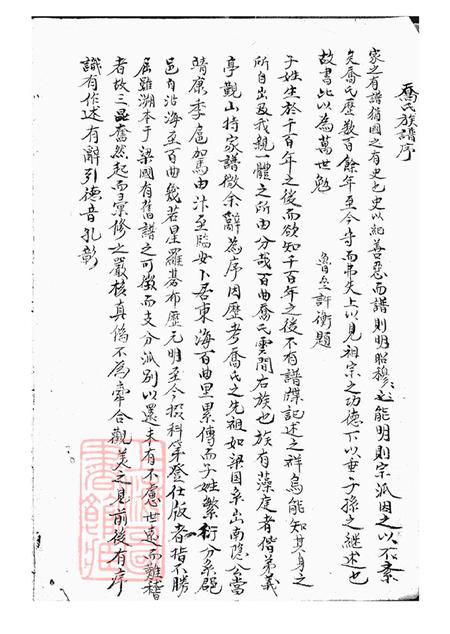 喬氏族譜序
家之有譜猶國之有史也史以紀善惡而譜則明昭穆昭穆能明則宗派因之以不紊
矣喬氏歷數百餘年至今守而弗失上以見祖宗之功德下以垂子孫之繼述也
故書此以為萬世勉
魯齋許衡題
子姓生於千百年之後而欲知千百年之後不有譜牒記述之祥烏能知其身之
所自出及我親一體之所由分哉百曲喬氏雲間右族也族有藻庭者偕弟義
亭觀山持家譜徵余辭為序因歷考喬氏之先祖如梁國系出南陰公當
靖康季扈加馬由汴至臨安卜居東海百曲里累傳而子姓繁衍分系鄉
邑自沿海至百曲幾若星羅棊布歷元明至今掇科第登仕版者指不勝
屈雖溯本于梁國有舊譜之可徵而支分派別以還未有不慮世遠而難稽
者故三昆奮然起而彙修之嚴核真偽不為牽合觀美之見前後有序
識有作述有辭引德音孔彰